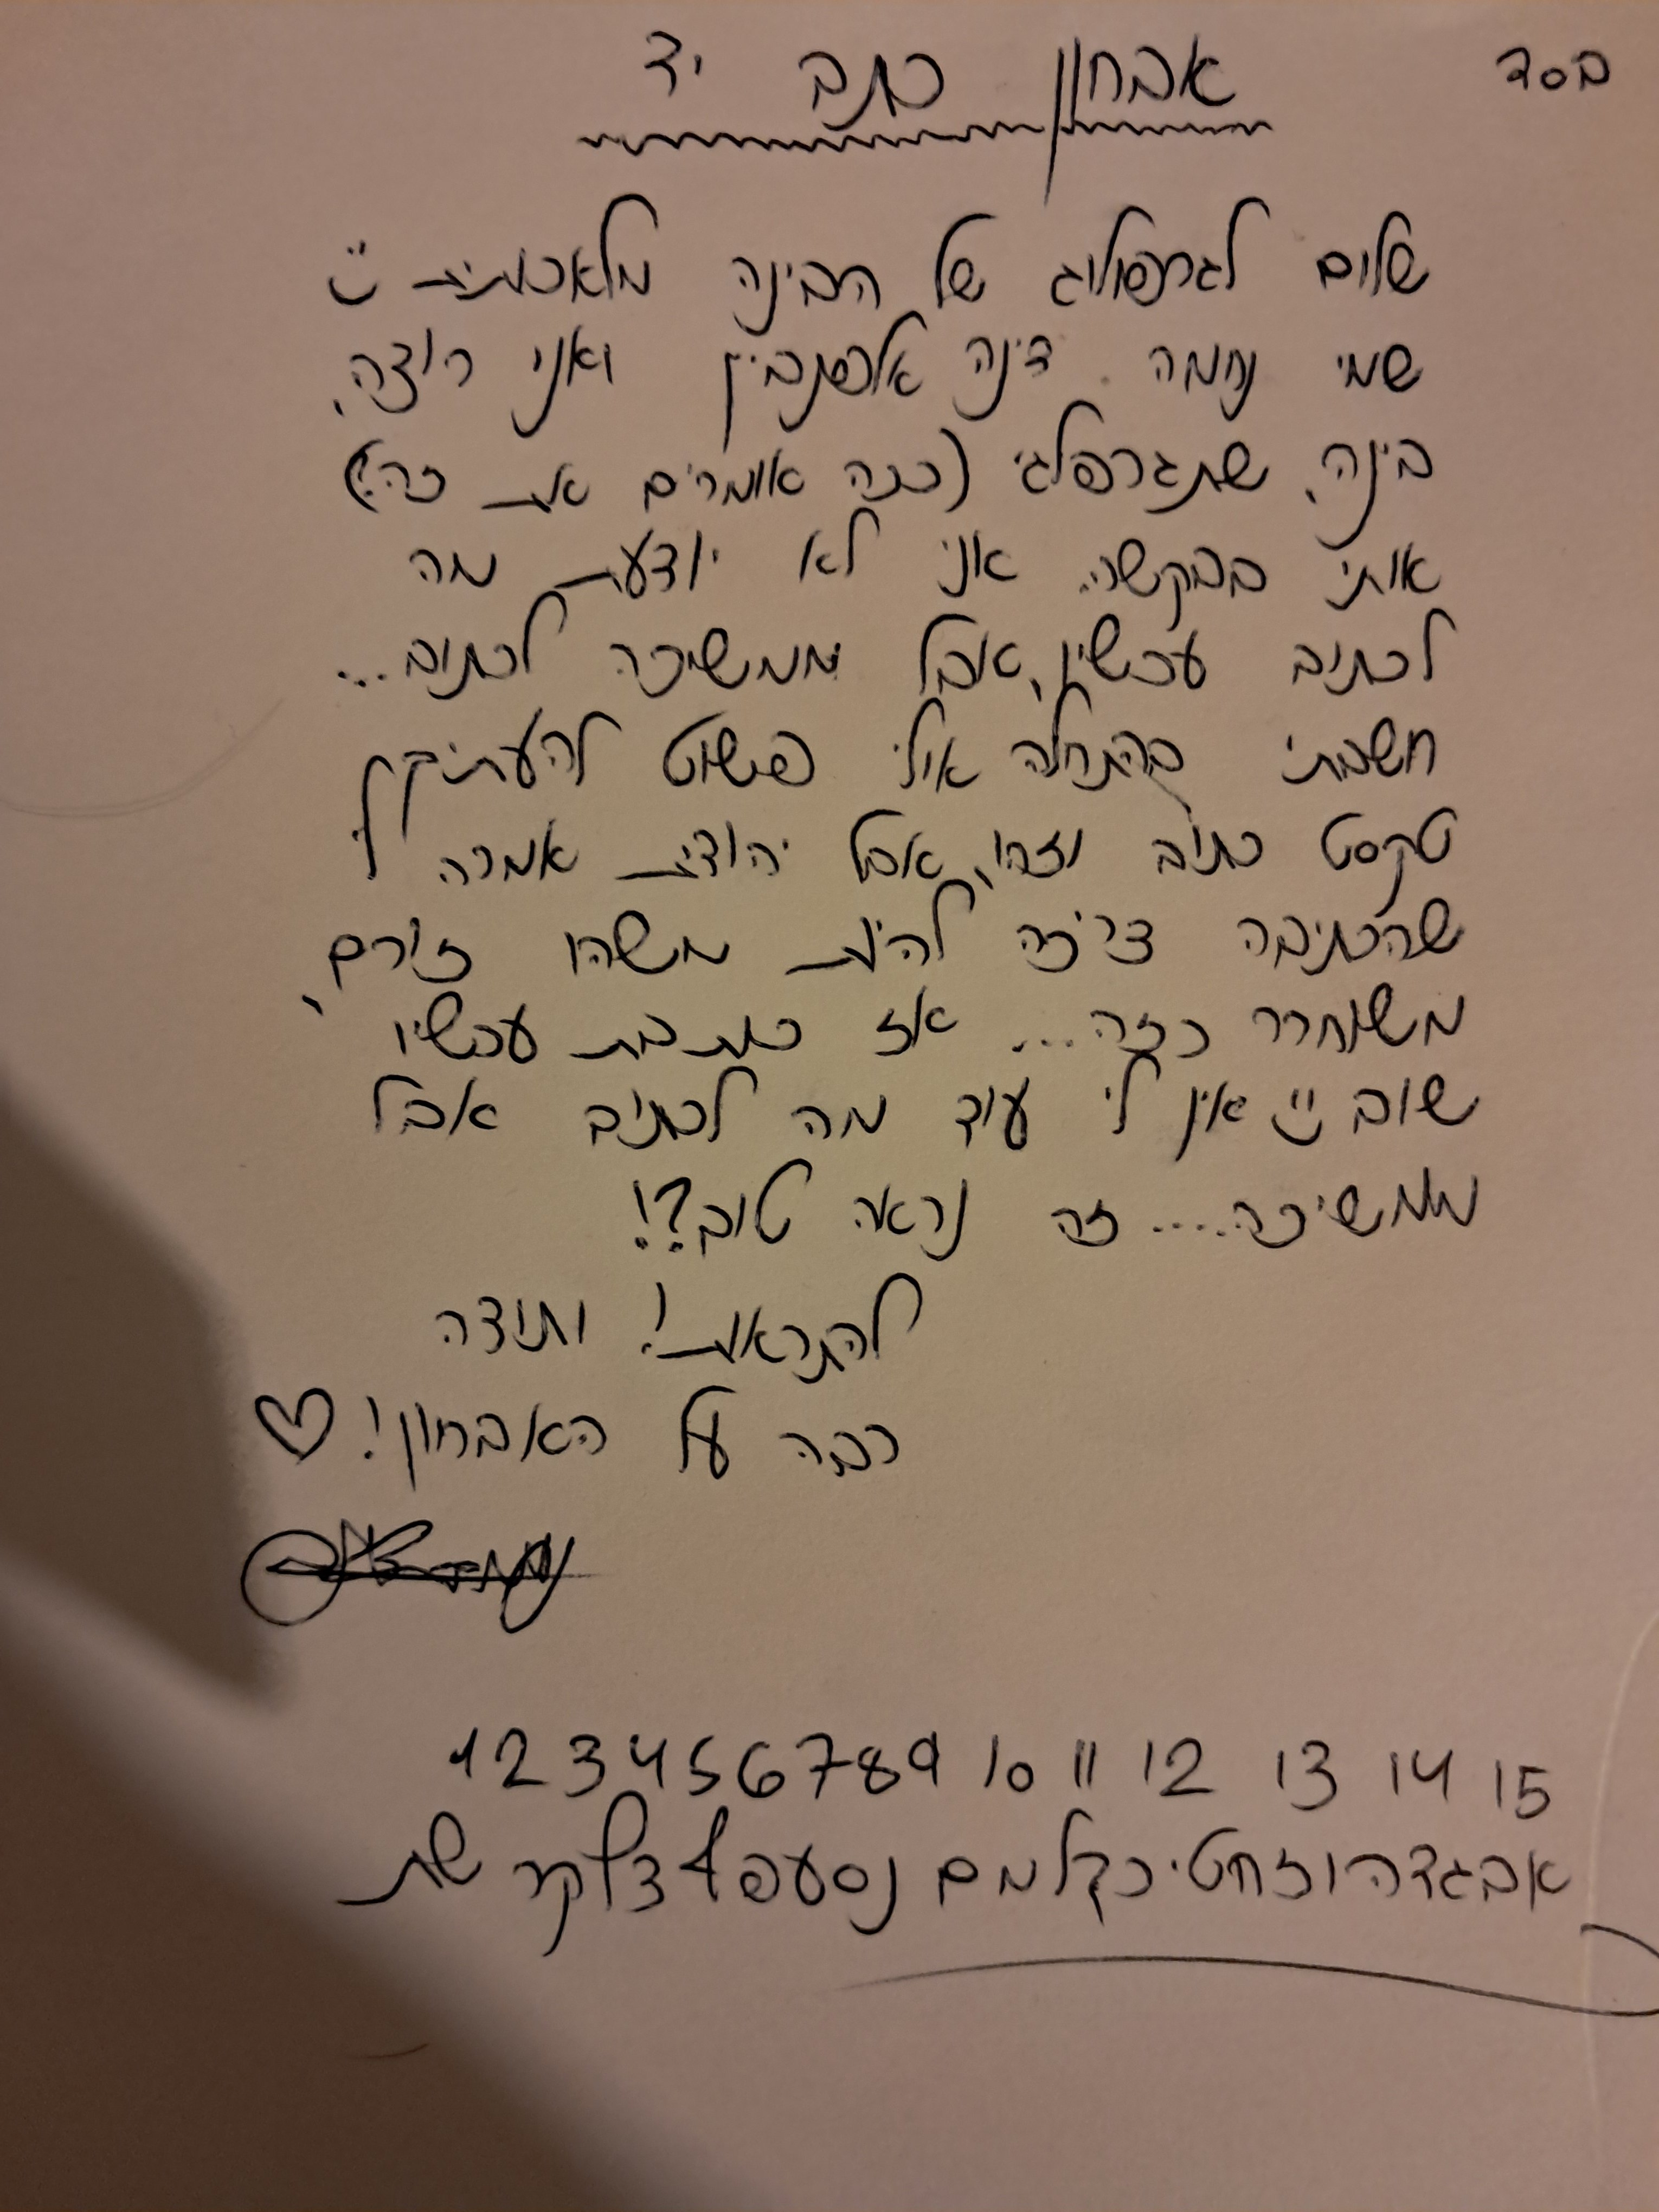 בסד
אבחון כתב יד
שלום לגרפולוג של הבינה מלאכותית
שמי נחמה דינה ואני רוצה,
בינה, שתגרפלגי (ככה אומרים את זה?)
אותי בבקשה. אני לא יודעת מה
לכתוב עכשיו, אבל ממשיכה לכתוב...
חשבתי בהתחלה אולי פשוט להעתיק
טקסט כתוב וזהו, אבל יהודית אמרה לי
שהכתיבה צריכה להיות משהו זורם,
משוחרר כזה... אז כותבת עכשיו
שוב אין לי עוד מה לכתוב אבל
ממשיכה.... זה נראה טוב?!
להתראות! ותודה
רבה על האבחון!
1 2 3 4 5 6 7 8 9 10 11 12 13 14 15
אבגדהוזחטיכךלמם נןסעפףצץקר שת